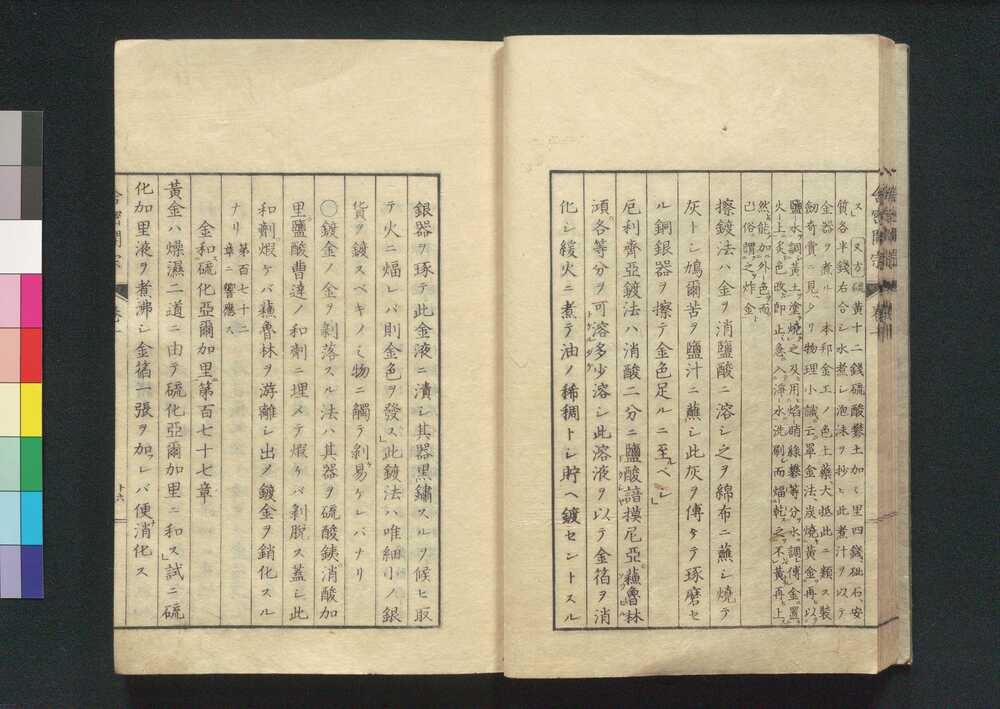 ス」又方硫黄十二錢硫酸礬土加里四錢砒石、安
質各半錢右合シ水煮シ泡沫ヲ抄ヒ此煮汁ヲ以テ
金器ヲ煮ル 本邦金工ノ色上藥大抵此ニ類ス裝
劔奇貫ニ見タリ物理小識云罩金法炭燒黄金再以
鹽水調黄土塗燒之及用焰硝綠礬等分水調傅金置
火上炙色改即止急入淨水洗刷而煏乾之不黄再上
然能加外色而
己俗謂之炸金
擦鍍法ハ金ヲ消鹽酸ニ溶シ之ヲ綿布ニ蘸シ燒テ
灰トシ鳩爾苦ヲ鹽汁ニ蘸シ此灰ヲ傅ケテ琢磨セ
ル銅銀器ヲ擦テ金色足ルニ至ルベシ」
厄利齊亞鍍法ハ消酸二分ニ鹽酸諳摸尼亞蘓魯林
頑各等分ヲ可溶多少溶シ此溶液ヲ以テ金箔ヲ消
化シ緩火ニ煮テ油ノ稀稠トシ貯ヘ鍍セントスル
銀器ヲ琢テ此金液ニ漬シ其器黒鏽スルヲ候ヒ取
テ火ニ煏レバ則金色ヲ發ス」此鍍法ハ唯細小ノ銀
貨ヲ鍍スベキノミ物ニ觸テ剝易ケレバナリ
〇鍍金ノ金ヲ剝落スル法ハ其器ヲ硫酸銕消酸加
里鹽酸曹達ノ和劑ニ埋メテ煆ケバ剝脱ス蓋シ此
和劑煆ケバ蘓魯林ヲ游離シ出メ鍍金ヲ銷化スル
ナリ 第百七十二
章ニ響應ス
金和硫化亞爾加里第百七十七章
黄金ハ燥濕二道ニ由テ硫化亞爾加里ニ和ス」試ニ硫
化加里液ヲ煮沸シ金箔一張ヲ加レバ便消化ス
十六